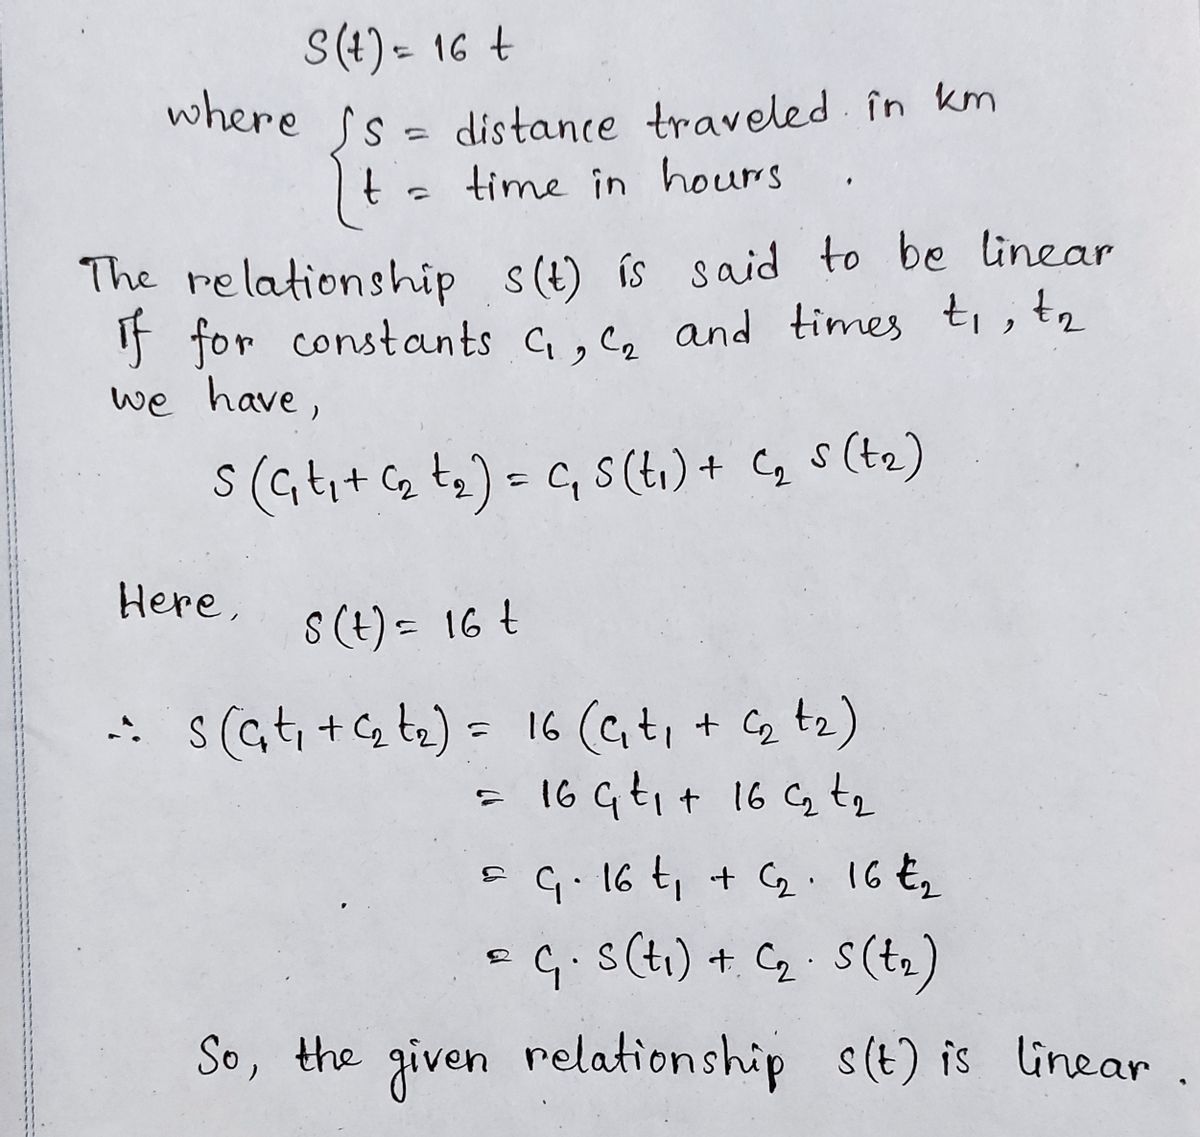 S(t) = 16 t
where { s = distance traveled in km
t = time in hours .
The relationship s(t) is said to be linear
If for constants C₁, C₂ and times t₁, t₂
we have,
S(C₁t₁ + C₂ t₂) = C₁ S(t₁) + C₂ S(t₂)
Here, S(t) = 16 t
∴ S(C₁t₁ + C₂t₂) = 16 (C₁t₁ + C₂ t₂)
= 16 C₁t₁ + 16 C₂ t₂
= C₁ · 16 t₁ + C₂ · 16 t₂
= C₁ · S(t₁) + C₂ · S(t₂)
So, the given relationship s(t) is linear .